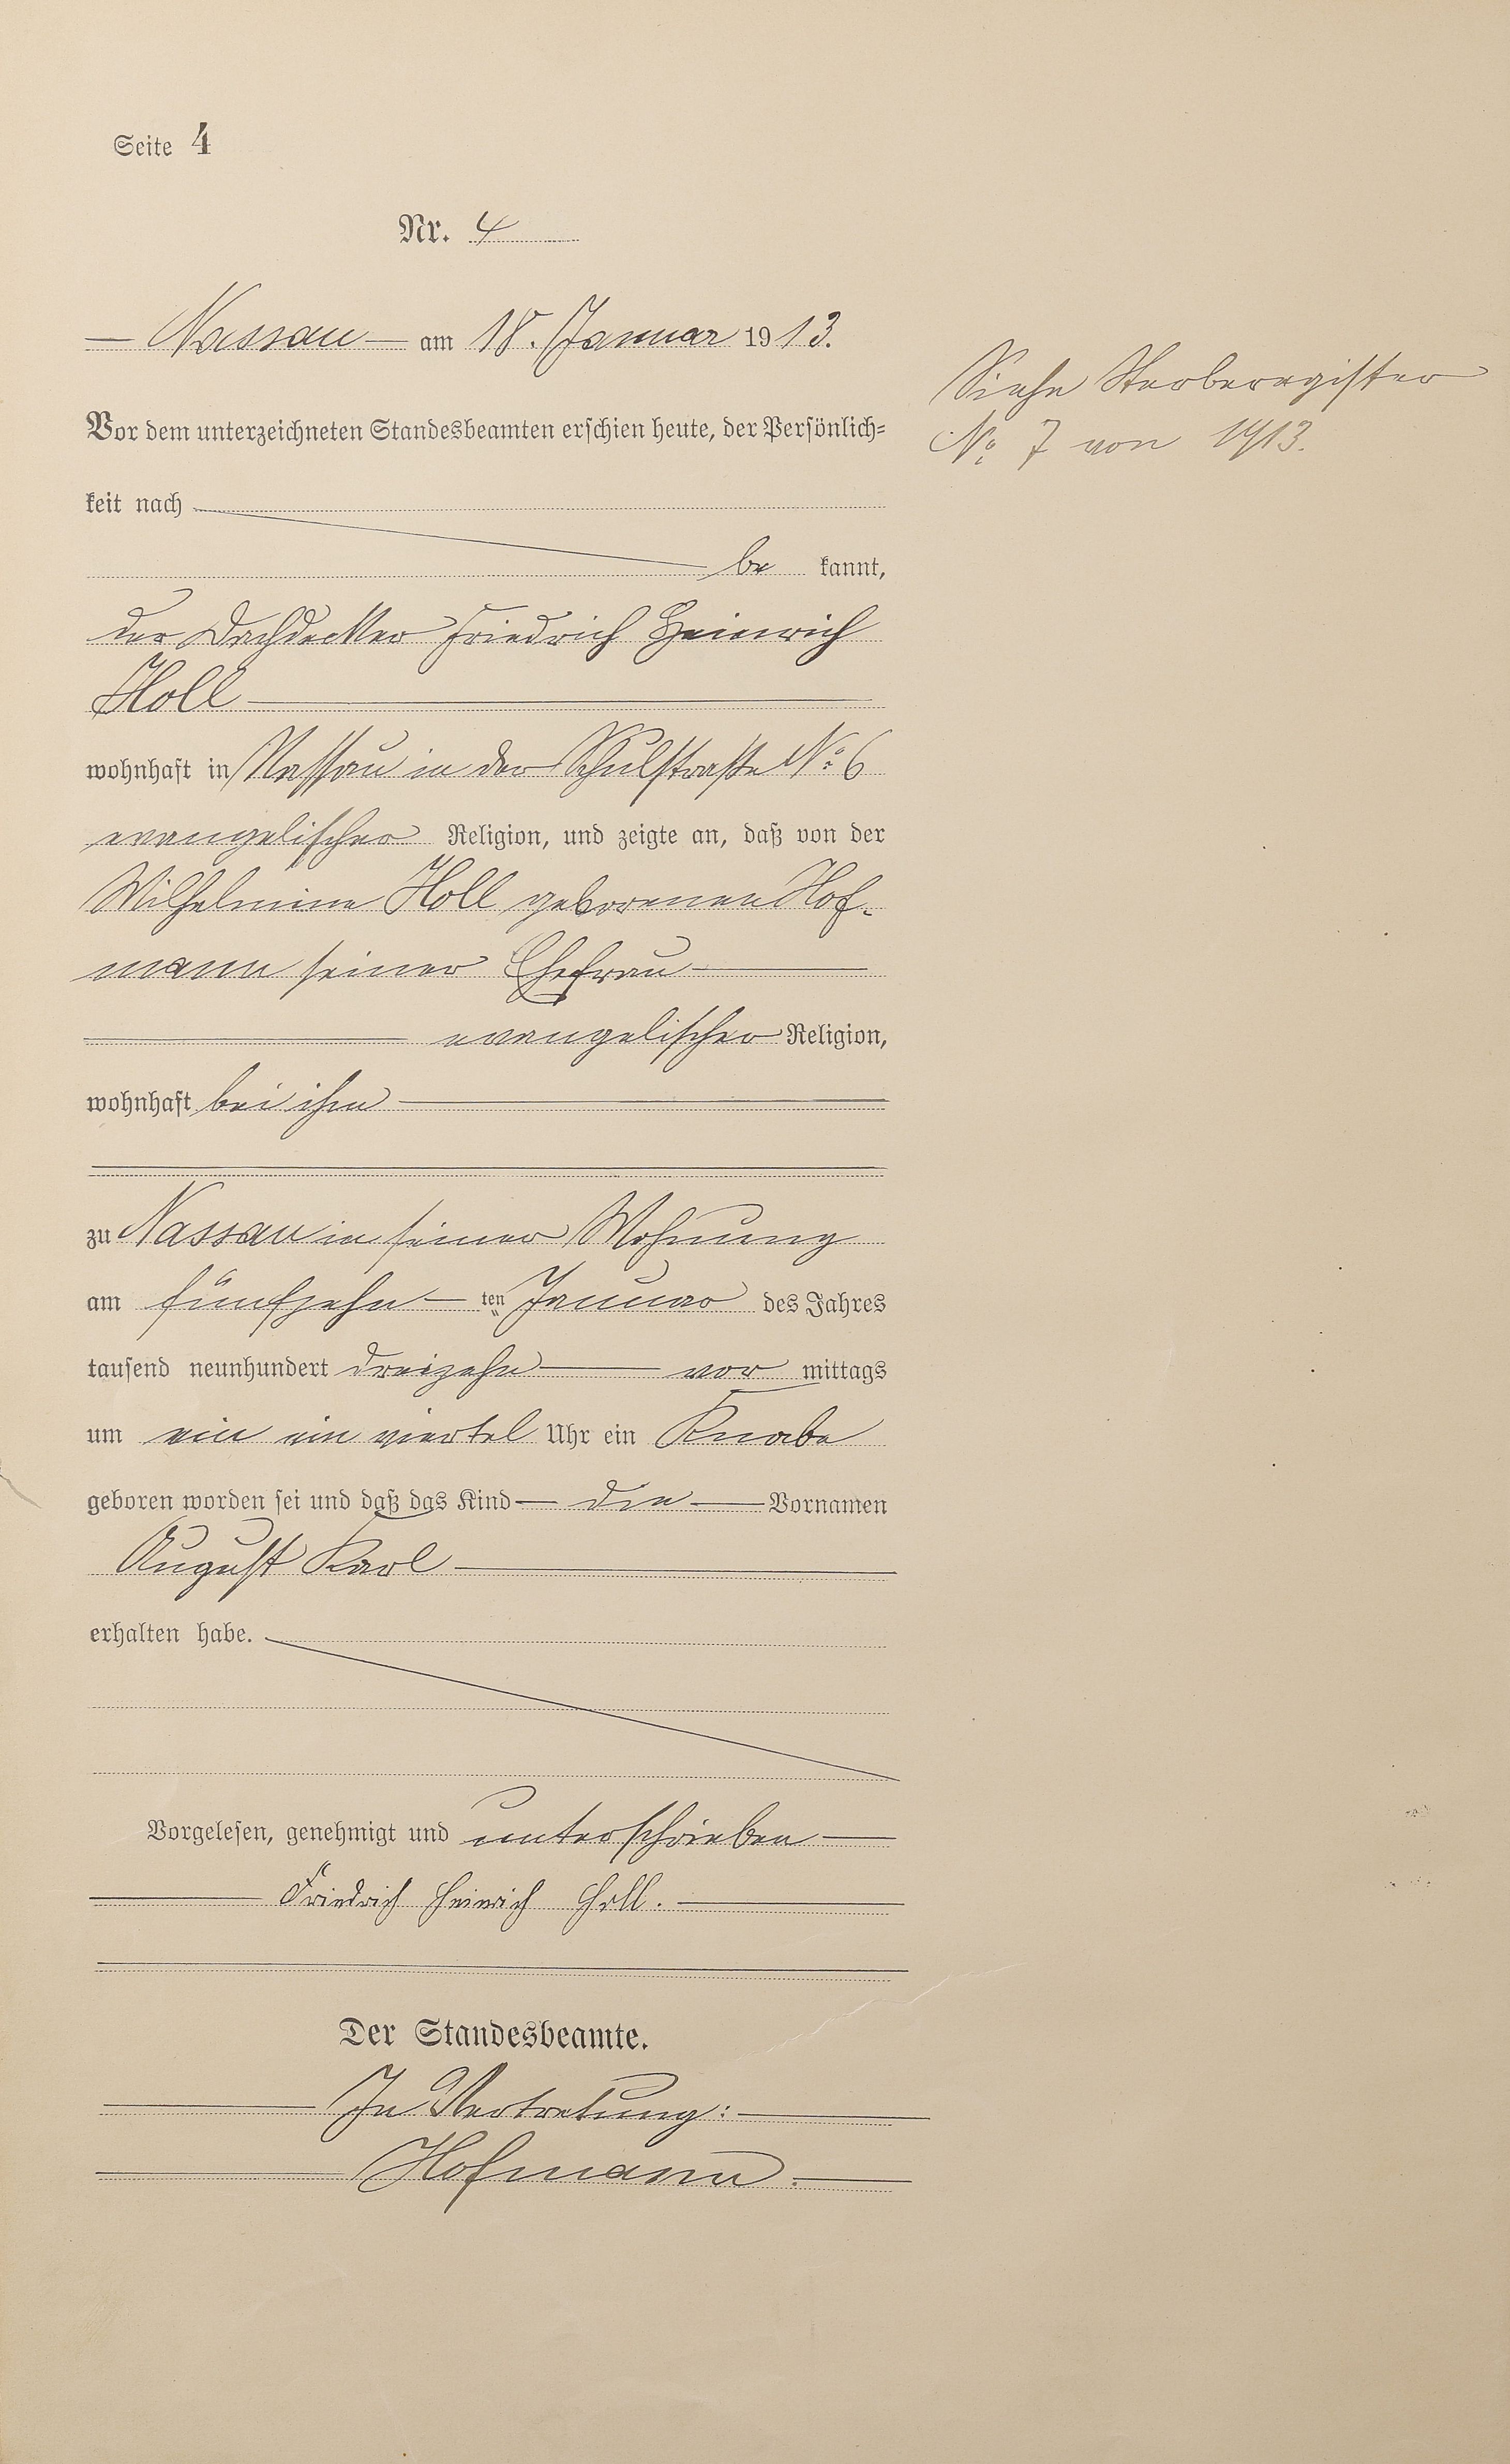 Seite 4
Nr. 4
Nassau am 18. Januar 1913.
Siehe Sterberegister
No 7 von 1913.
Vor dem unterzeichneten Standesbeamten erschien heute, der Persönlich=
keit nach
be kannt,
der Dachdecker Friedrich Heinrich
Holl
wohnhaft in Nassau in der Schulstraße No 6
evangelischer Religion, und zeigte an, daß von der
Wilhelmine Holl geborenen Hof-
mann seiner Ehefrau
evangelischer Religion,
wohnhaft bei ihm
zu Nassau in seiner Wohnung
am fünfzehn ten Januar des Jahres
tausend neunhundert dreizehn vor mittags
um ein ein viertel Uhr ein Knabe
geboren worden sei und daß das Kind die Vornamen
August Karl
erhalten habe.
Vorgelesen, genehmigt und unterschrieben
Friedrich Heinrich Holl.
Der Standesbeamte.
In Vertretung:
Hofmann.